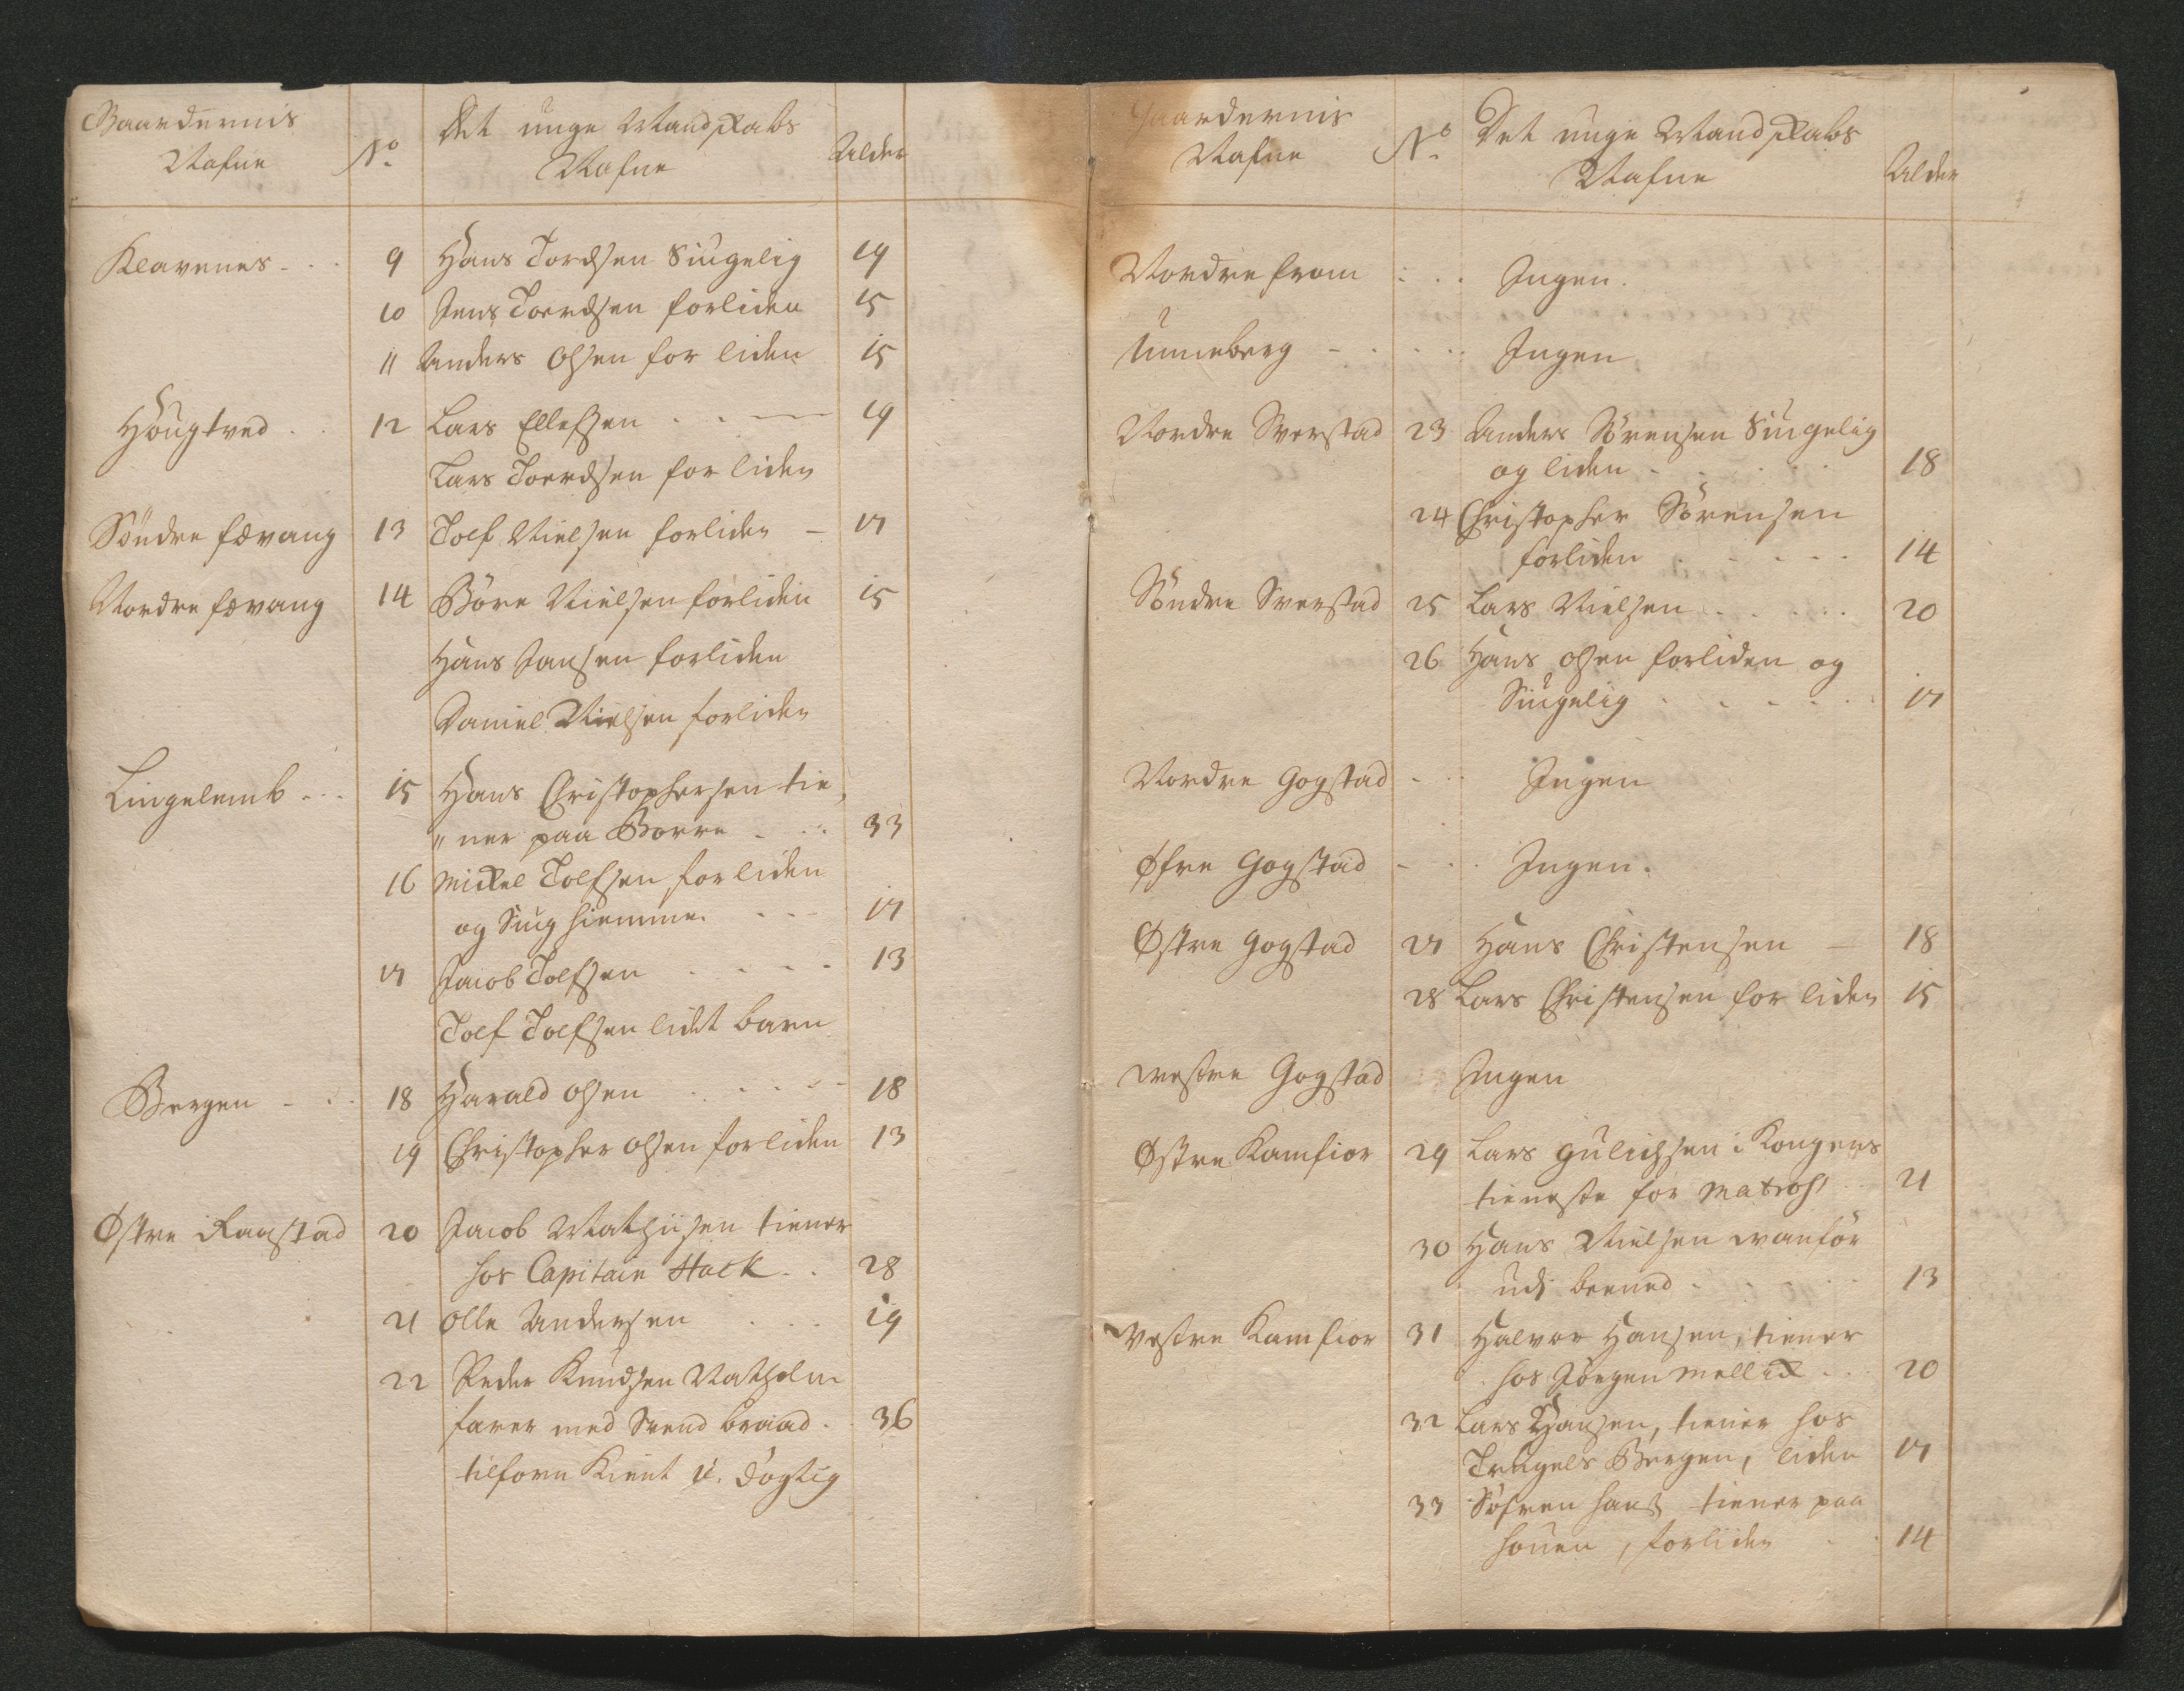 Gaardernis
Nafne
No
Det unge Mandskabs
Nafne
Alder
Klavenes - . . 9 Hans Tordsen Siugelig 19
10 Jens Toerdsen forliden 15
11 Anders Olsen for liden 15
Hougtved . . 12 Lars Ellefsen . . — 19
Lars Toerdsen for liden
Söndre fevang 13 Tolf Nielsen forliden — 17
Nordre fevang 14 Böre Nielsen forliden 15
Hans Jansen forliden
Daniel Nielsen forliden
Lingelemb - . . 15 Hans Christophersen tie,
" ner paa Borre . . . 33
16 Mickel Tolfsen for liden
og Siug hiemme . - - 17
17 Jacob Tolfsen . . . . 13
Tolf Tolfsen lidet barn
Bergen - . . 18 Harald Olsen . . . . 18
19 Christopher Olsen forliden 13
Østre Raastad 20 Jacob Mathiisen tiener
hos Capitain Hack . . 28
21 Olle Andersen . . . 19
22 Peder Knudsen Natholm
farer med Svend braad . 36
tilforn Kient u. dögtig
Gaardernis
Nafne
No
Det unge Mandskabs
Nafne
Alder
Nordre from : . . Ingen.
Unneberg - . . . . Ingen
Nordre Sverstad 23 Anders Sörensen Siugelig
og liden . . . . . 18
24 Christopher Sörensen
forliden . . . . . 14
Söndre Sverstad 25 Lars Nielsen . . . . . 20
26 Hans Olsen forliden og
Siugelig . . . . . 17
Nordre Gogstad - . . Ingen
Øfre Gogstad - . . Ingen.
Østre Gogstad 27 Hans Christensen — 18
28 Lars Christensen for liden 15
westre Gogstad Ingen
Østre Kamfior 29 Lars gulichsen i Kongens
tieneste for Matrohs . . 21
30 Hans Nielsen vanför
udi beened . . . . . 13
Vestre Kamfior 31 Halvor Hansen, tiener
hos Jörgen Mellix . . . 20
32 Lars Hansen, tiener hos
Trugels Bergen, liden 17
33 Söfren hans tiener paa
houen, forliden . . 14